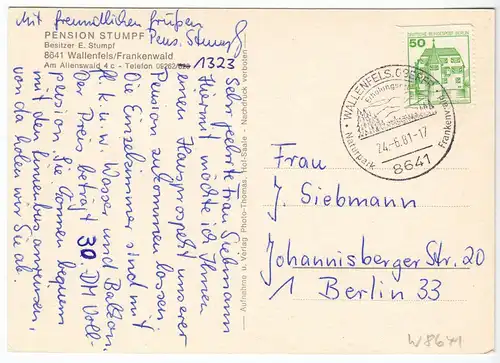 Mit freundlichen Grüßen
Pens. Stumpf
PENSION STUMPF
Besitzer E. Stumpf
8641 Wallenfels/Frankenwald
Am Alienswald 4 c - Telefon 09262/
1323
Sehr geehrte Frau Siebmann
Hiermit möchte ich Ihnen
einen Hausprospekt unserer
Pension zukommen lassen.
Die Einzelzimmer sind mit
fl. k. u. w. Wasser und Balkon.
Der Preis beträgt 30 DM Voll-
pension. Sie können bequem
mit den Linienbus anreisen,
von da holen wir Sie ab.
Aufnahme u. Verlag Photo-Thomas, Hof-Saale - Nachdruck verboten
50
DEUTSCHE BUNDESPOST BERLIN
WALLENFELS, OBERFR.
Naturpark Frankenwald
24.-6.81-17
8641
Frau
J. Siebmann
Johannisberger Str. 20
1 Berlin 33
W8641